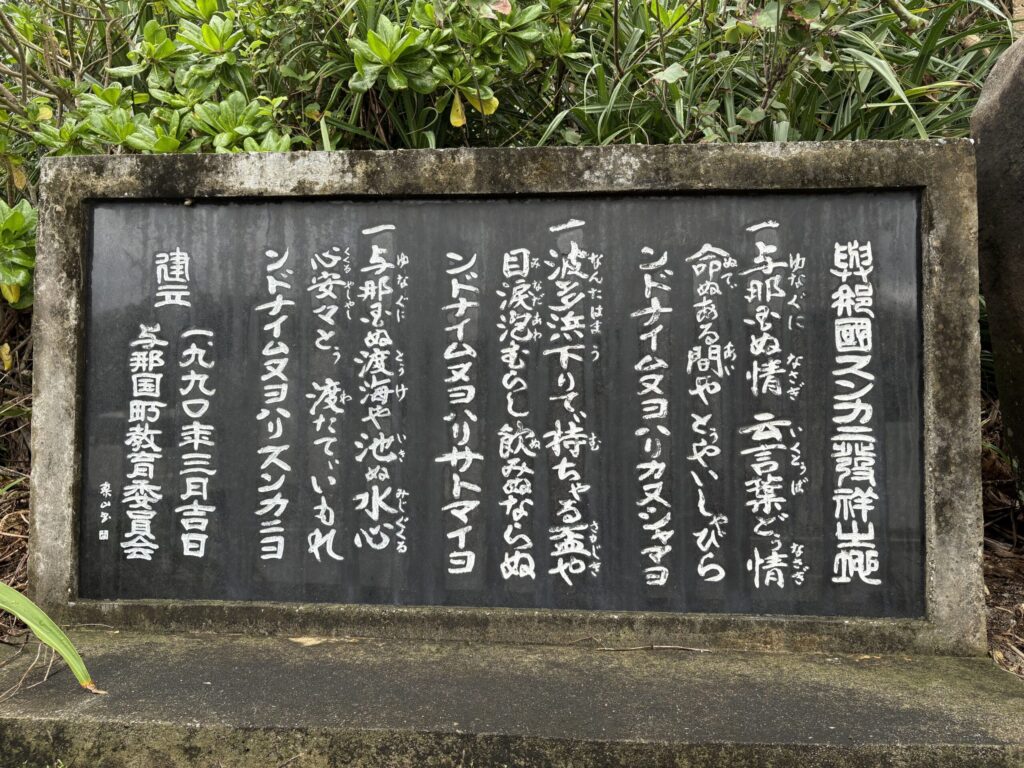 與那國スンカニ發祥之地
一 与那国ぬ情 云言葉どぅ情
命ぬある間や とぅやいしゃびら
ンドナイムヌヨハリカヌシャマヨ
一 波多浜下りてぃ持ちゃる盃や
目涙泡むらし飲みぬならぬ
ンドナイムヌヨハリサトマイヨ
一 与那国ぬ渡海や池ぬ水心
心安々とぅ 渡たてぃいもれ
ンドナイムヌヨハリスンカニヨ
建立 一九九〇年三月吉日
与那国町教育委員会